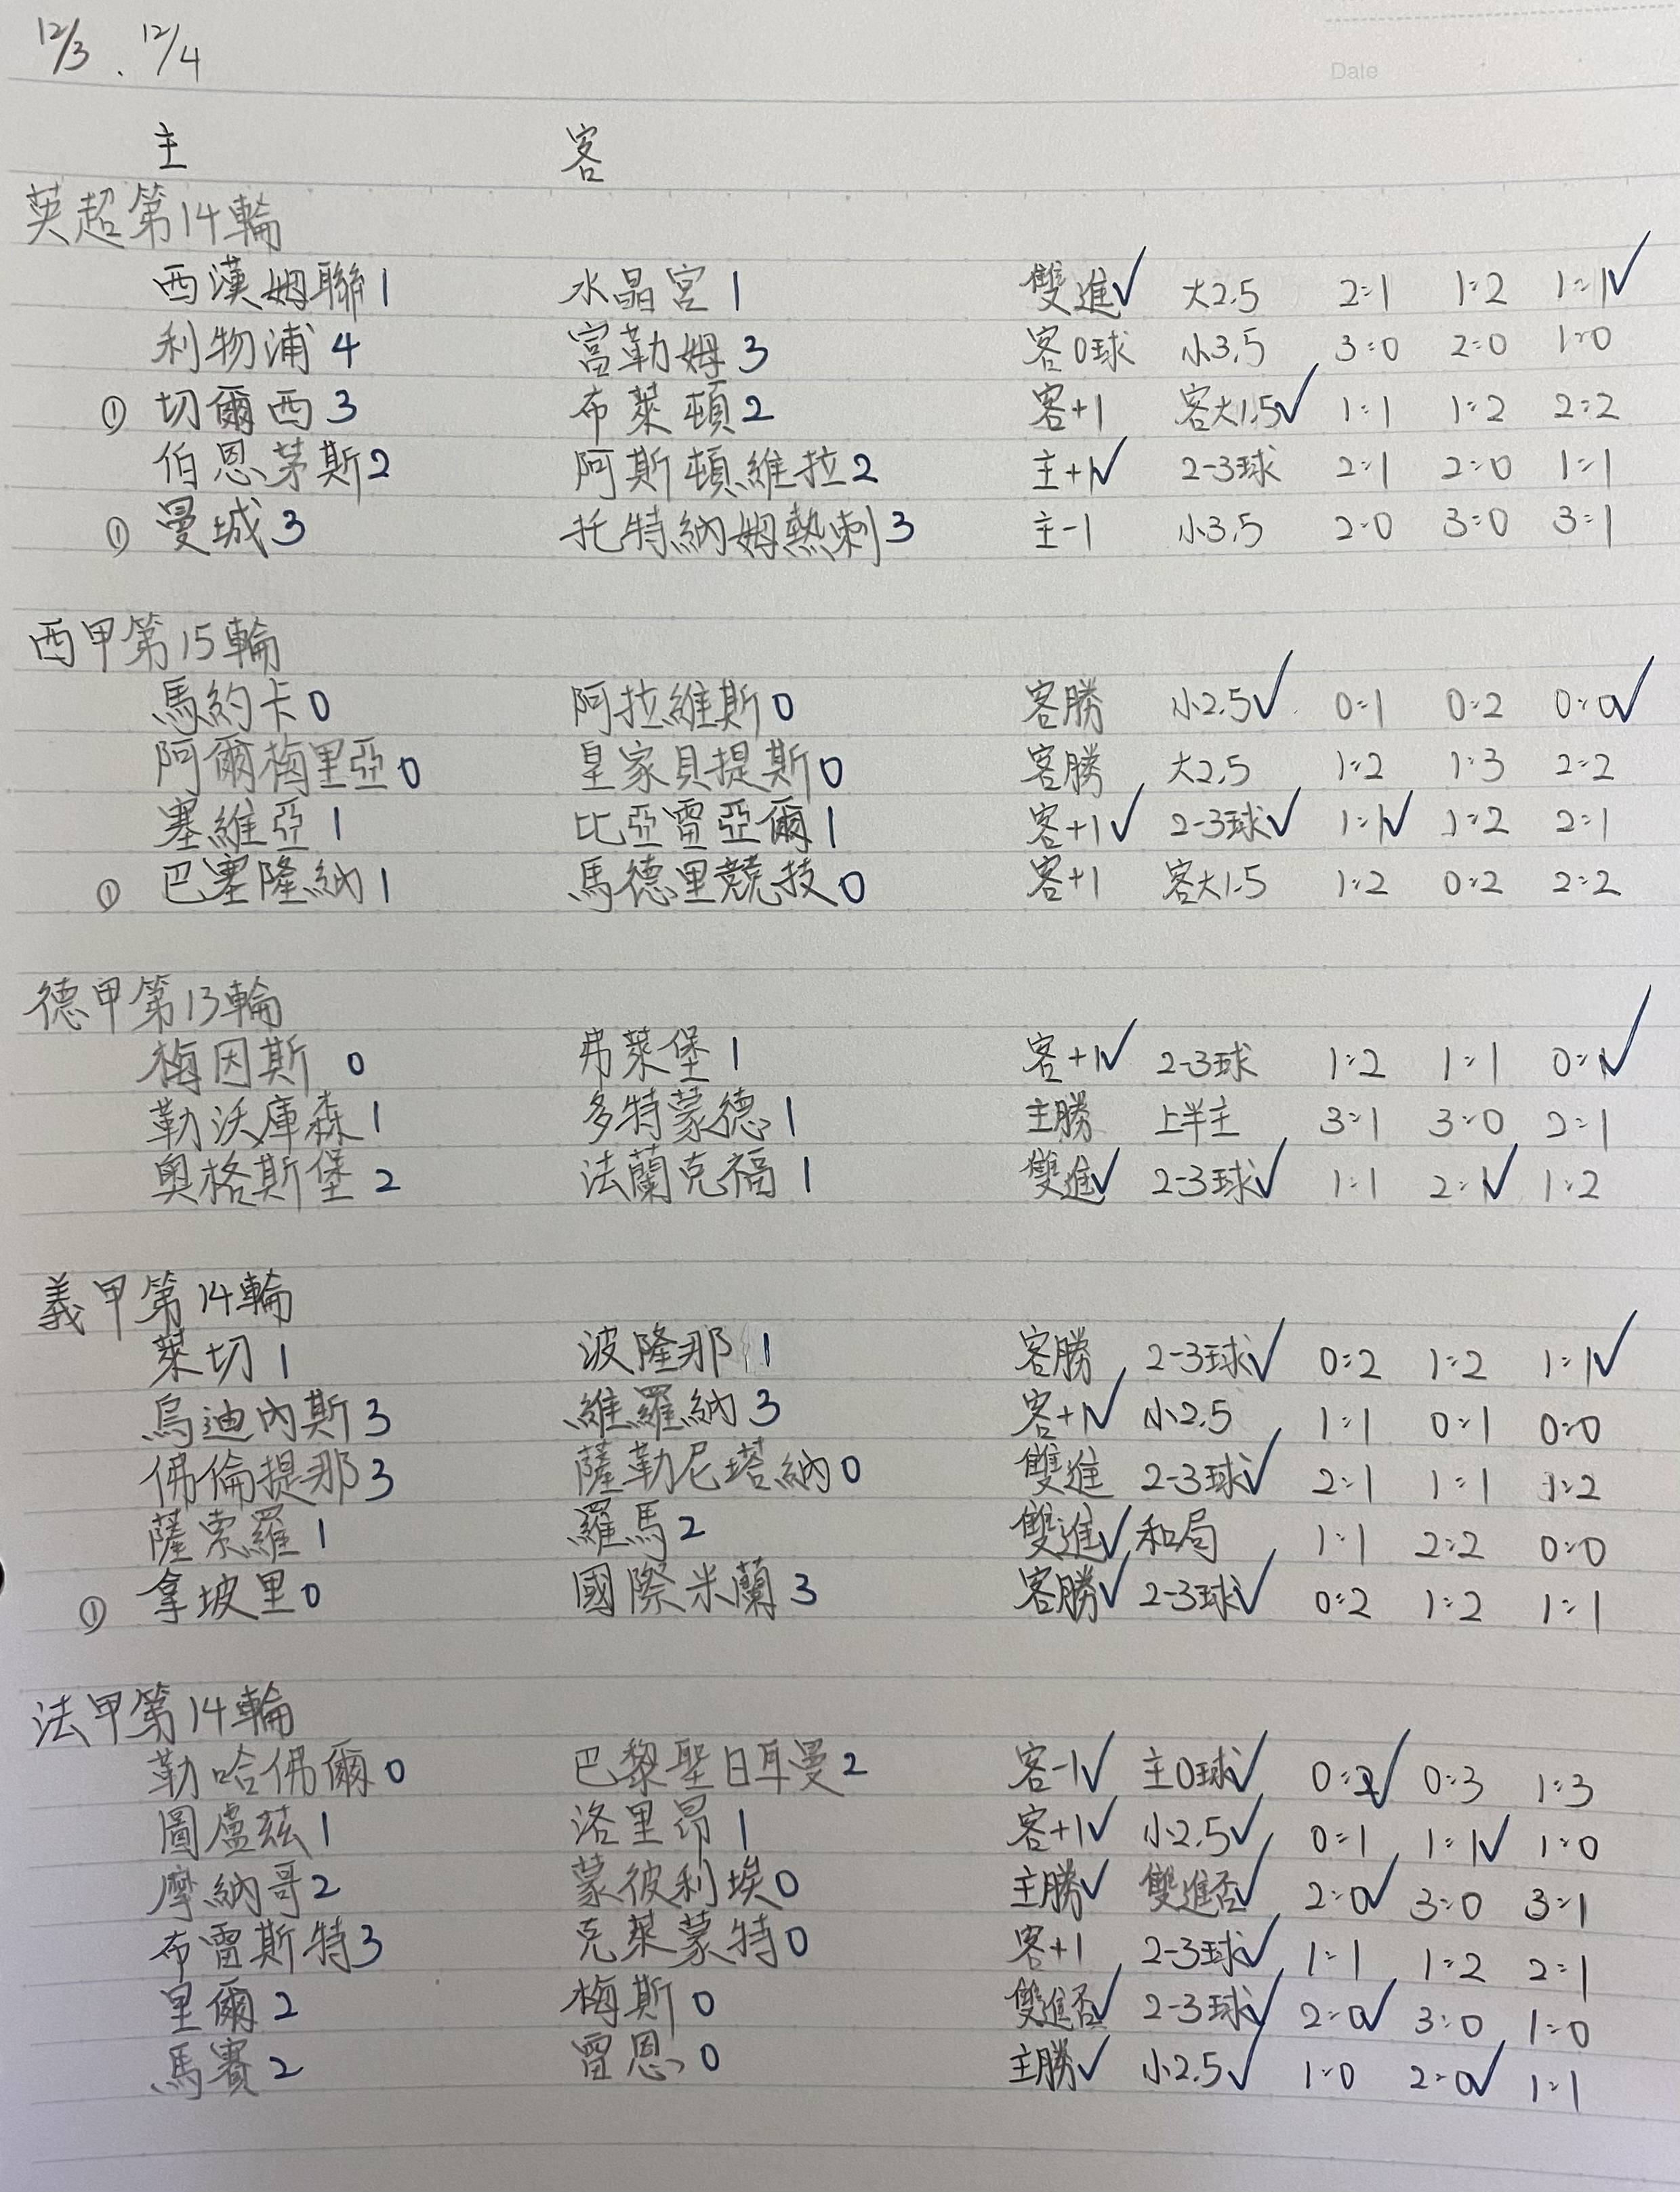 12/3、12/4
Date
主 客
英超第14輪
西漢姆聯1 水晶宮1 雙進✓ 大2.5 2:1 1:2 1:1✓
利物浦4 富勒姆3 客0球 小3.5 3:0 2:0 1:0
① 切爾西3 布萊頓2 客+1 客大1.5✓ 1:1 1:2 2:2
伯恩茅斯2 阿斯頓維拉2 主+1✓ 2-3球 2:1 2:0 1:1
① 曼城3 托特納姆熱刺3 主-1 小3.5 2:0 3:0 3:1
西甲第15輪
馬約卡0 阿拉維斯0 客勝 小2.5✓ 0:1 0:2 0:0✓
阿爾梅里亞0 皇家貝提斯0 客勝 大2.5 1:2 1:3 2:2
塞維亞1 比亞雷亞爾1 客+1✓ 2-3球✓ 1:1✓ 1:2 2:1
① 巴塞隆納1 馬德里競技0 客+1 客大1.5 1:2 0:2 2:2
德甲第13輪
梅因斯0 弗萊堡1 客+1✓ 2-3球 1:2 1:1 0:1✓
勒沃庫森1 多特蒙德1 主勝 上半主 3:1 3:0 2:1
奧格斯堡2 法蘭克福1 雙進✓ 2-3球✓ 1:1 2:1✓ 1:2
義甲第14輪
萊切1 波隆那1 客勝 2-3球✓ 0:2 1:2 1:1✓
烏迪內斯3 維羅納3 客+1✓ 小2.5 1:1 0:1 0:0
佛倫提那3 薩勒尼塔納0 雙進 2-3球✓ 2:1 1:1 1:2
薩索羅1 羅馬2 雙進✓ 和局 1:1 2:2 0:0
① 拿坡里0 國際米蘭3 客勝✓ 2-3球✓ 0:2 1:2 1:1
法甲第14輪
勒哈佛爾0 巴黎聖日耳曼2 客-1✓ 主0球✓ 0:2✓ 0:3 1:3
圖盧茲1 洛里昂1 客+1✓ 小2.5✓ 0:1 1:1✓ 1:0
摩納哥2 蒙彼利埃0 主勝✓ 雙進否✓ 2:0✓ 3:0 3:1
布雷斯特3 克萊蒙特0 客+1 2-3球✓ 1:1 1:2 2:1
里爾2 梅斯0 雙進否✓ 2-3球✓ 2:0✓ 3:0 1:0
馬賽2 雷恩0 主勝✓ 小2.5✓ 1:0 2:0✓ 1:1